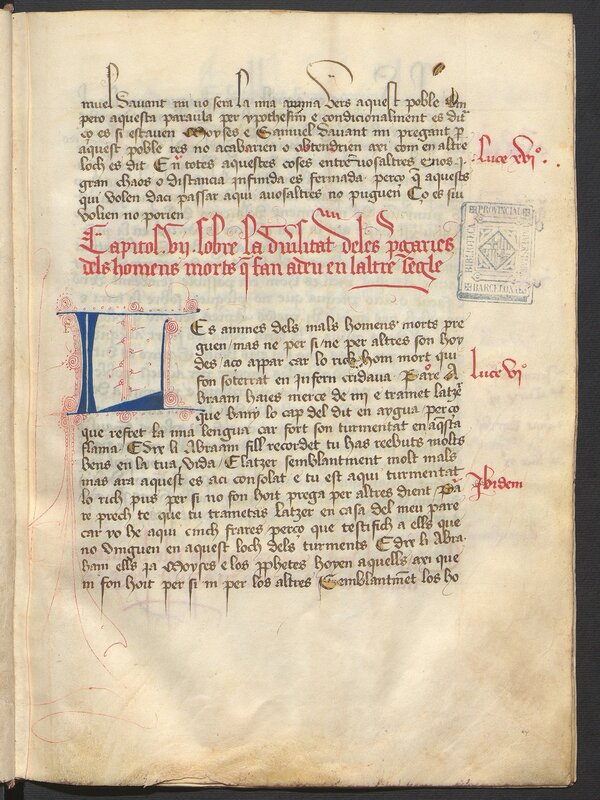 muel davant mi no sera la mia anima vers aquest poble Em
pero aquesta paraula per ypothesim e condicionalment es dita
ço es si estauen Moyses e Samuel davant mi pregant p
aquest poble res no acabarien o obtendrien axi com en altre
loch es dit En totes aquestes coses entre vosaltres e nos .i.
gran chaos o distancia infinida es fermada perço q aquests
qui volen daci passar aqui avosaltres no puguen Ço es siu
volien no porien
Luce xvi°.
Capitol .vij. sobre la diversitat deles pregaries
dels homens morts q fan adeu en laltre segle
BIBLIOTECA PROVINCIAL
BARCELONA
LEs animes dels mals homens morts pre
guen mas ne per si ne per altres son hoy
des aço appar car lo rich hom mort qui
fon soterrat en infern cridava Pare A
braam haies merce de mi e tramet latzer
que bany lo cap del dit en aygua perço
que refret la mia lengua car fort son turmentat en aqsta
flama E dix li Abraam fill recordet tu has reebuts molts
bens en la tua vida E latzer semblantment molt mals
mas ara aquest es aci consolat e tu est aqui turmentat
lo rich pus per si no fon hoit prega per altres dient Pa
re prech te que tu trametas latzer en casa del meu pare
car yo he aqui cinch frares perço que testifich a ells que
no vinguen en aquest loch dels turments E dix li Abra
ham ells ja Moyses e los pphetes hoyen aquells axi que
ni fon hoit per si ni per los altres Semblantment los ho
Luce vi°
Ibidem